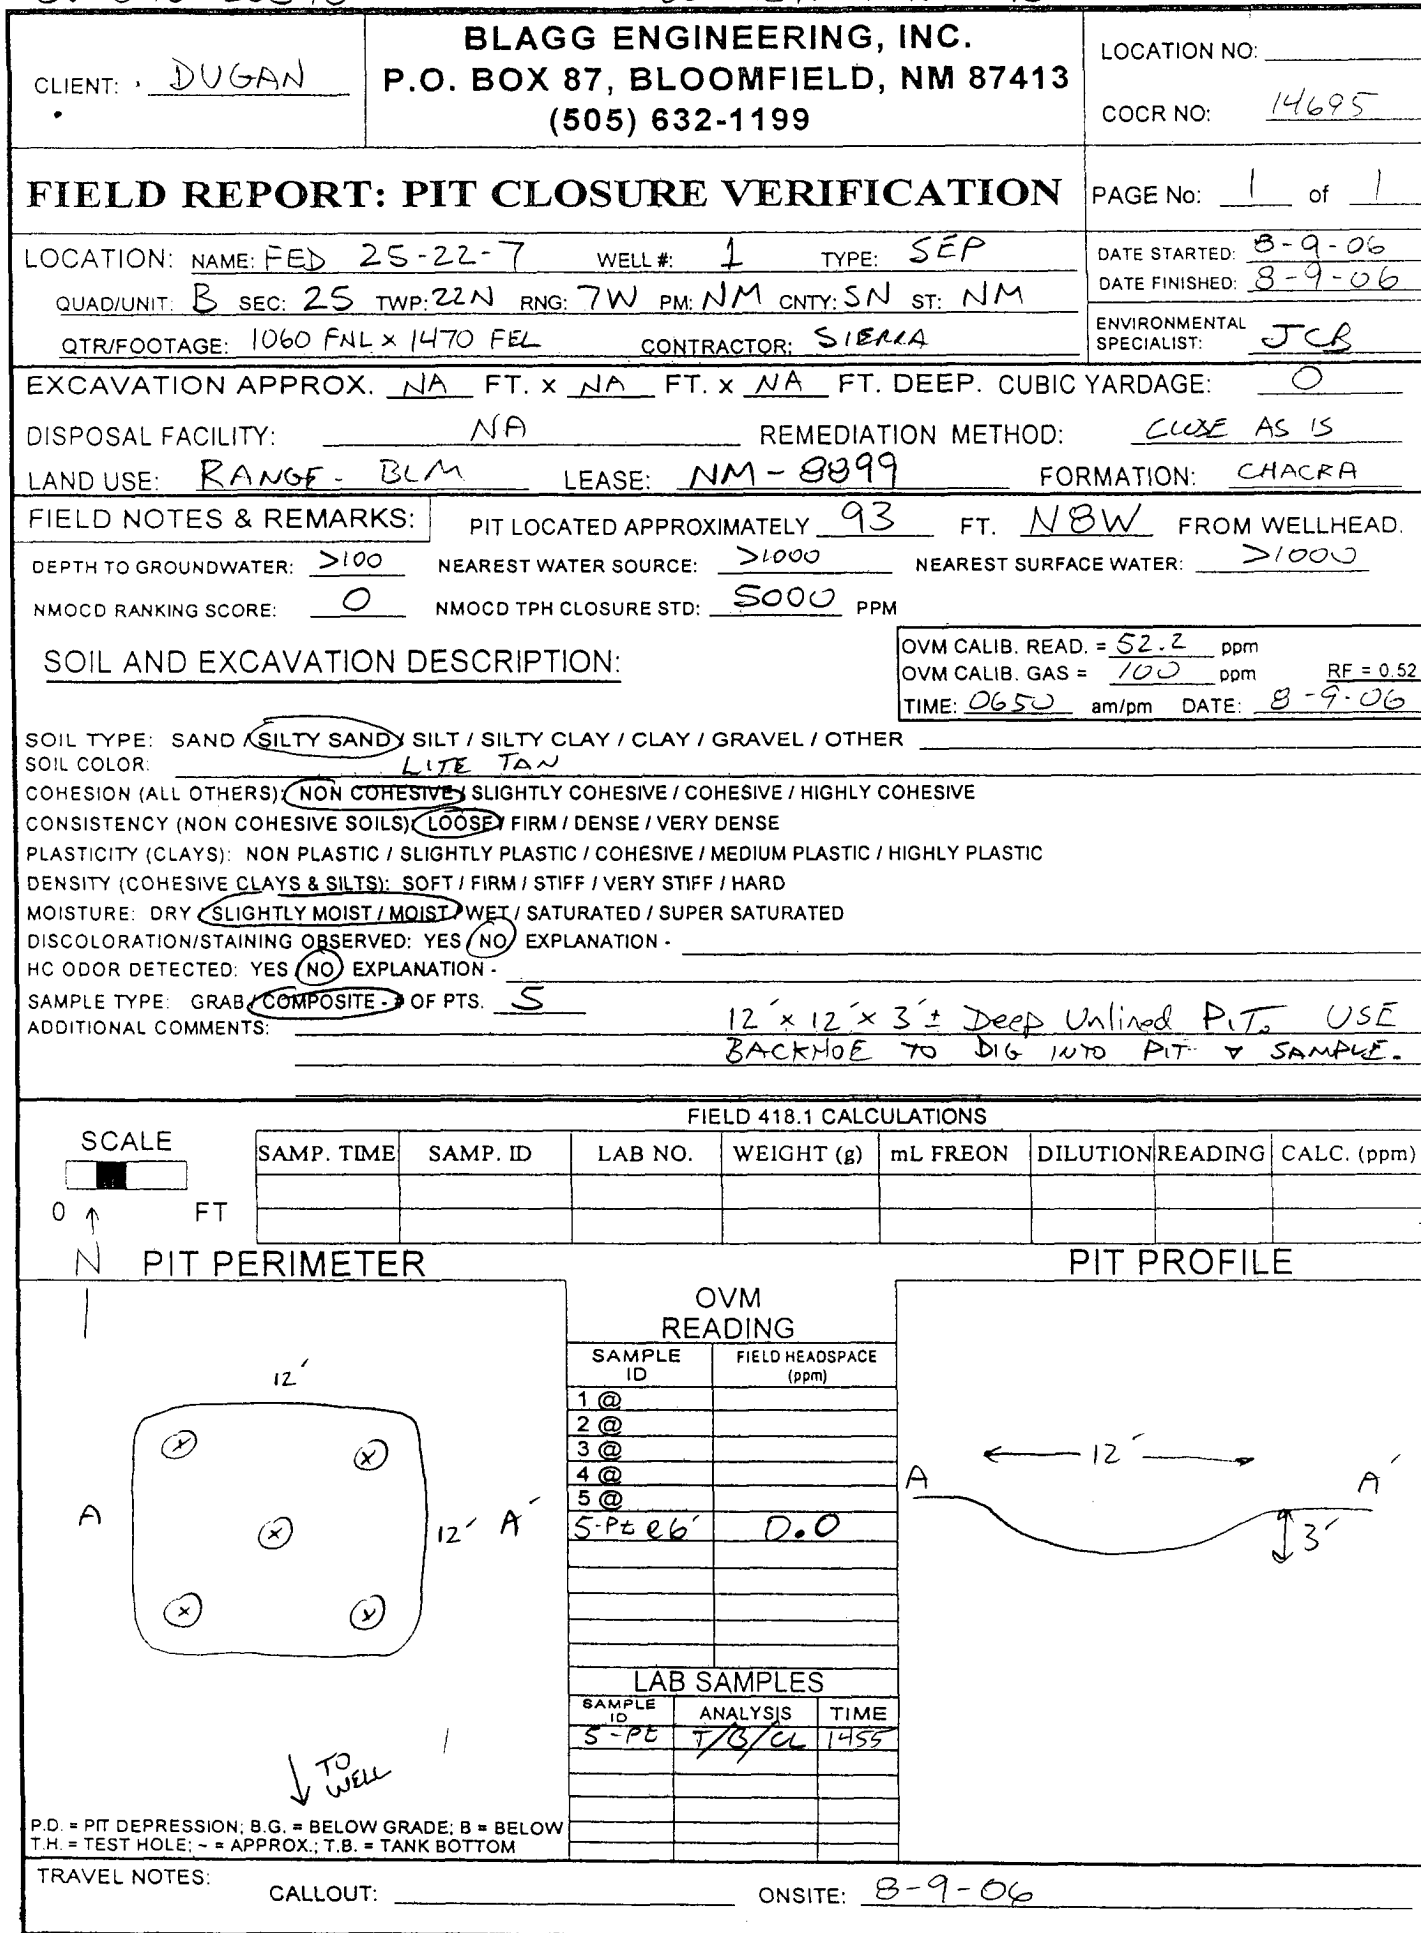 BLAGG ENGINEERING, INC.
P.O. BOX 87, BLOOMFIELD, NM 87413
(505) 632-1199
CLIENT: DUGAN
LOCATION NO:
COCR NO: 14695
FIELD REPORT: PIT CLOSURE VERIFICATION
PAGE No: 1 of 1
LOCATION: NAME: FED 25-22-7 WELL #: 1 TYPE: SEP
QUAD/UNIT: B SEC: 25 TWP: 22N RNG: 7W PM: NM CNTY: SN ST: NM
QTR/FOOTAGE: 1060 FNL x 1470 FEL CONTRACTOR: SIERRA
DATE STARTED: 8-9-06
DATE FINISHED: 8-9-06
ENVIRONMENTAL SPECIALIST: JCB
EXCAVATION APPROX. NA FT. x NA FT. x NA FT. DEEP. CUBIC YARDAGE: 0
DISPOSAL FACILITY: NA REMEDIATION METHOD: CLOSE AS IS
LAND USE: RANGE - BLM LEASE: NM-8899 FORMATION: CHACRA
FIELD NOTES & REMARKS: PIT LOCATED APPROXIMATELY 93 FT. N8W FROM WELLHEAD.
DEPTH TO GROUNDWATER: >100 NEAREST WATER SOURCE: >1000 NEAREST SURFACE WATER: >1000
NMOCD RANKING SCORE: 0 NMOCD TPH CLOSURE STD: 5000 PPM
SOIL AND EXCAVATION DESCRIPTION:
OVM CALIB. READ. = 52.2 ppm
OVM CALIB. GAS = 100 ppm RF = 0.52
TIME: 0650 am/pm DATE: 8-9-06
SOIL TYPE: SAND / SILTY SAND / SILT / SILTY CLAY / CLAY / GRAVEL / OTHER
SOIL COLOR: LITE TAN
COHESION (ALL OTHERS): NON COHESIVE / SLIGHTLY COHESIVE / COHESIVE / HIGHLY COHESIVE
CONSISTENCY (NON COHESIVE SOILS): LOOSE / FIRM / DENSE / VERY DENSE
PLASTICITY (CLAYS): NON PLASTIC / SLIGHTLY PLASTIC / COHESIVE / MEDIUM PLASTIC / HIGHLY PLASTIC
DENSITY (COHESIVE CLAYS & SILTS): SOFT / FIRM / STIFF / VERY STIFF / HARD
MOISTURE: DRY / SLIGHTLY MOIST / MOIST / WET / SATURATED / SUPER SATURATED
DISCOLORATION/STAINING OBSERVED: YES / NO EXPLANATION -
HC ODOR DETECTED: YES / NO EXPLANATION -
SAMPLE TYPE: GRAB / COMPOSITE - # OF PTS. 5
ADDITIONAL COMMENTS: 12' x 12' x 3' ± Deep Unlined PIT. USE
BACKHOE TO DIG INTO PIT & SAMPLE.
FIELD 418.1 CALCULATIONS
SCALE
0 FT
SAMP. TIME SAMP. ID LAB NO. WEIGHT (g) mL FREON DILUTION READING CALC. (ppm)
N PIT PERIMETER
PIT PROFILE
OVM
READING
SAMPLE ID FIELD HEADSPACE (ppm)
1 @
2 @
3 @
4 @
5 @
5-Pt @ 6' 0.0
12'
A
12' A'
12'
A A'
3'
LAB SAMPLES
SAMPLE ID ANALYSIS TIME
5-Pt T/B/CL 1455
TO WELL
P.D. = PIT DEPRESSION; B.G. = BELOW GRADE; B = BELOW
T.H. = TEST HOLE; ~ = APPROX.; T.B. = TANK BOTTOM
TRAVEL NOTES:
CALLOUT: ONSITE: 8-9-06